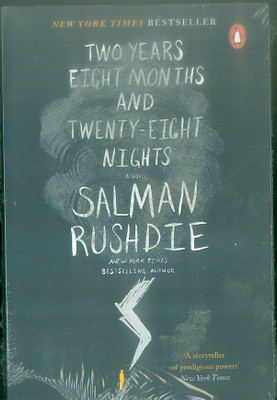 NEW YORK TIMES BESTSELLER
TWO YEARS
EIGHT MONTHS
AND
TWENTY-EIGHT
NIGHTS
A NOVEL
SALMAN
RUSHDIE
NEW YORK TIMES
BESTSELLING AUTHOR
'A storyteller
of prodigious powers'
New York Times